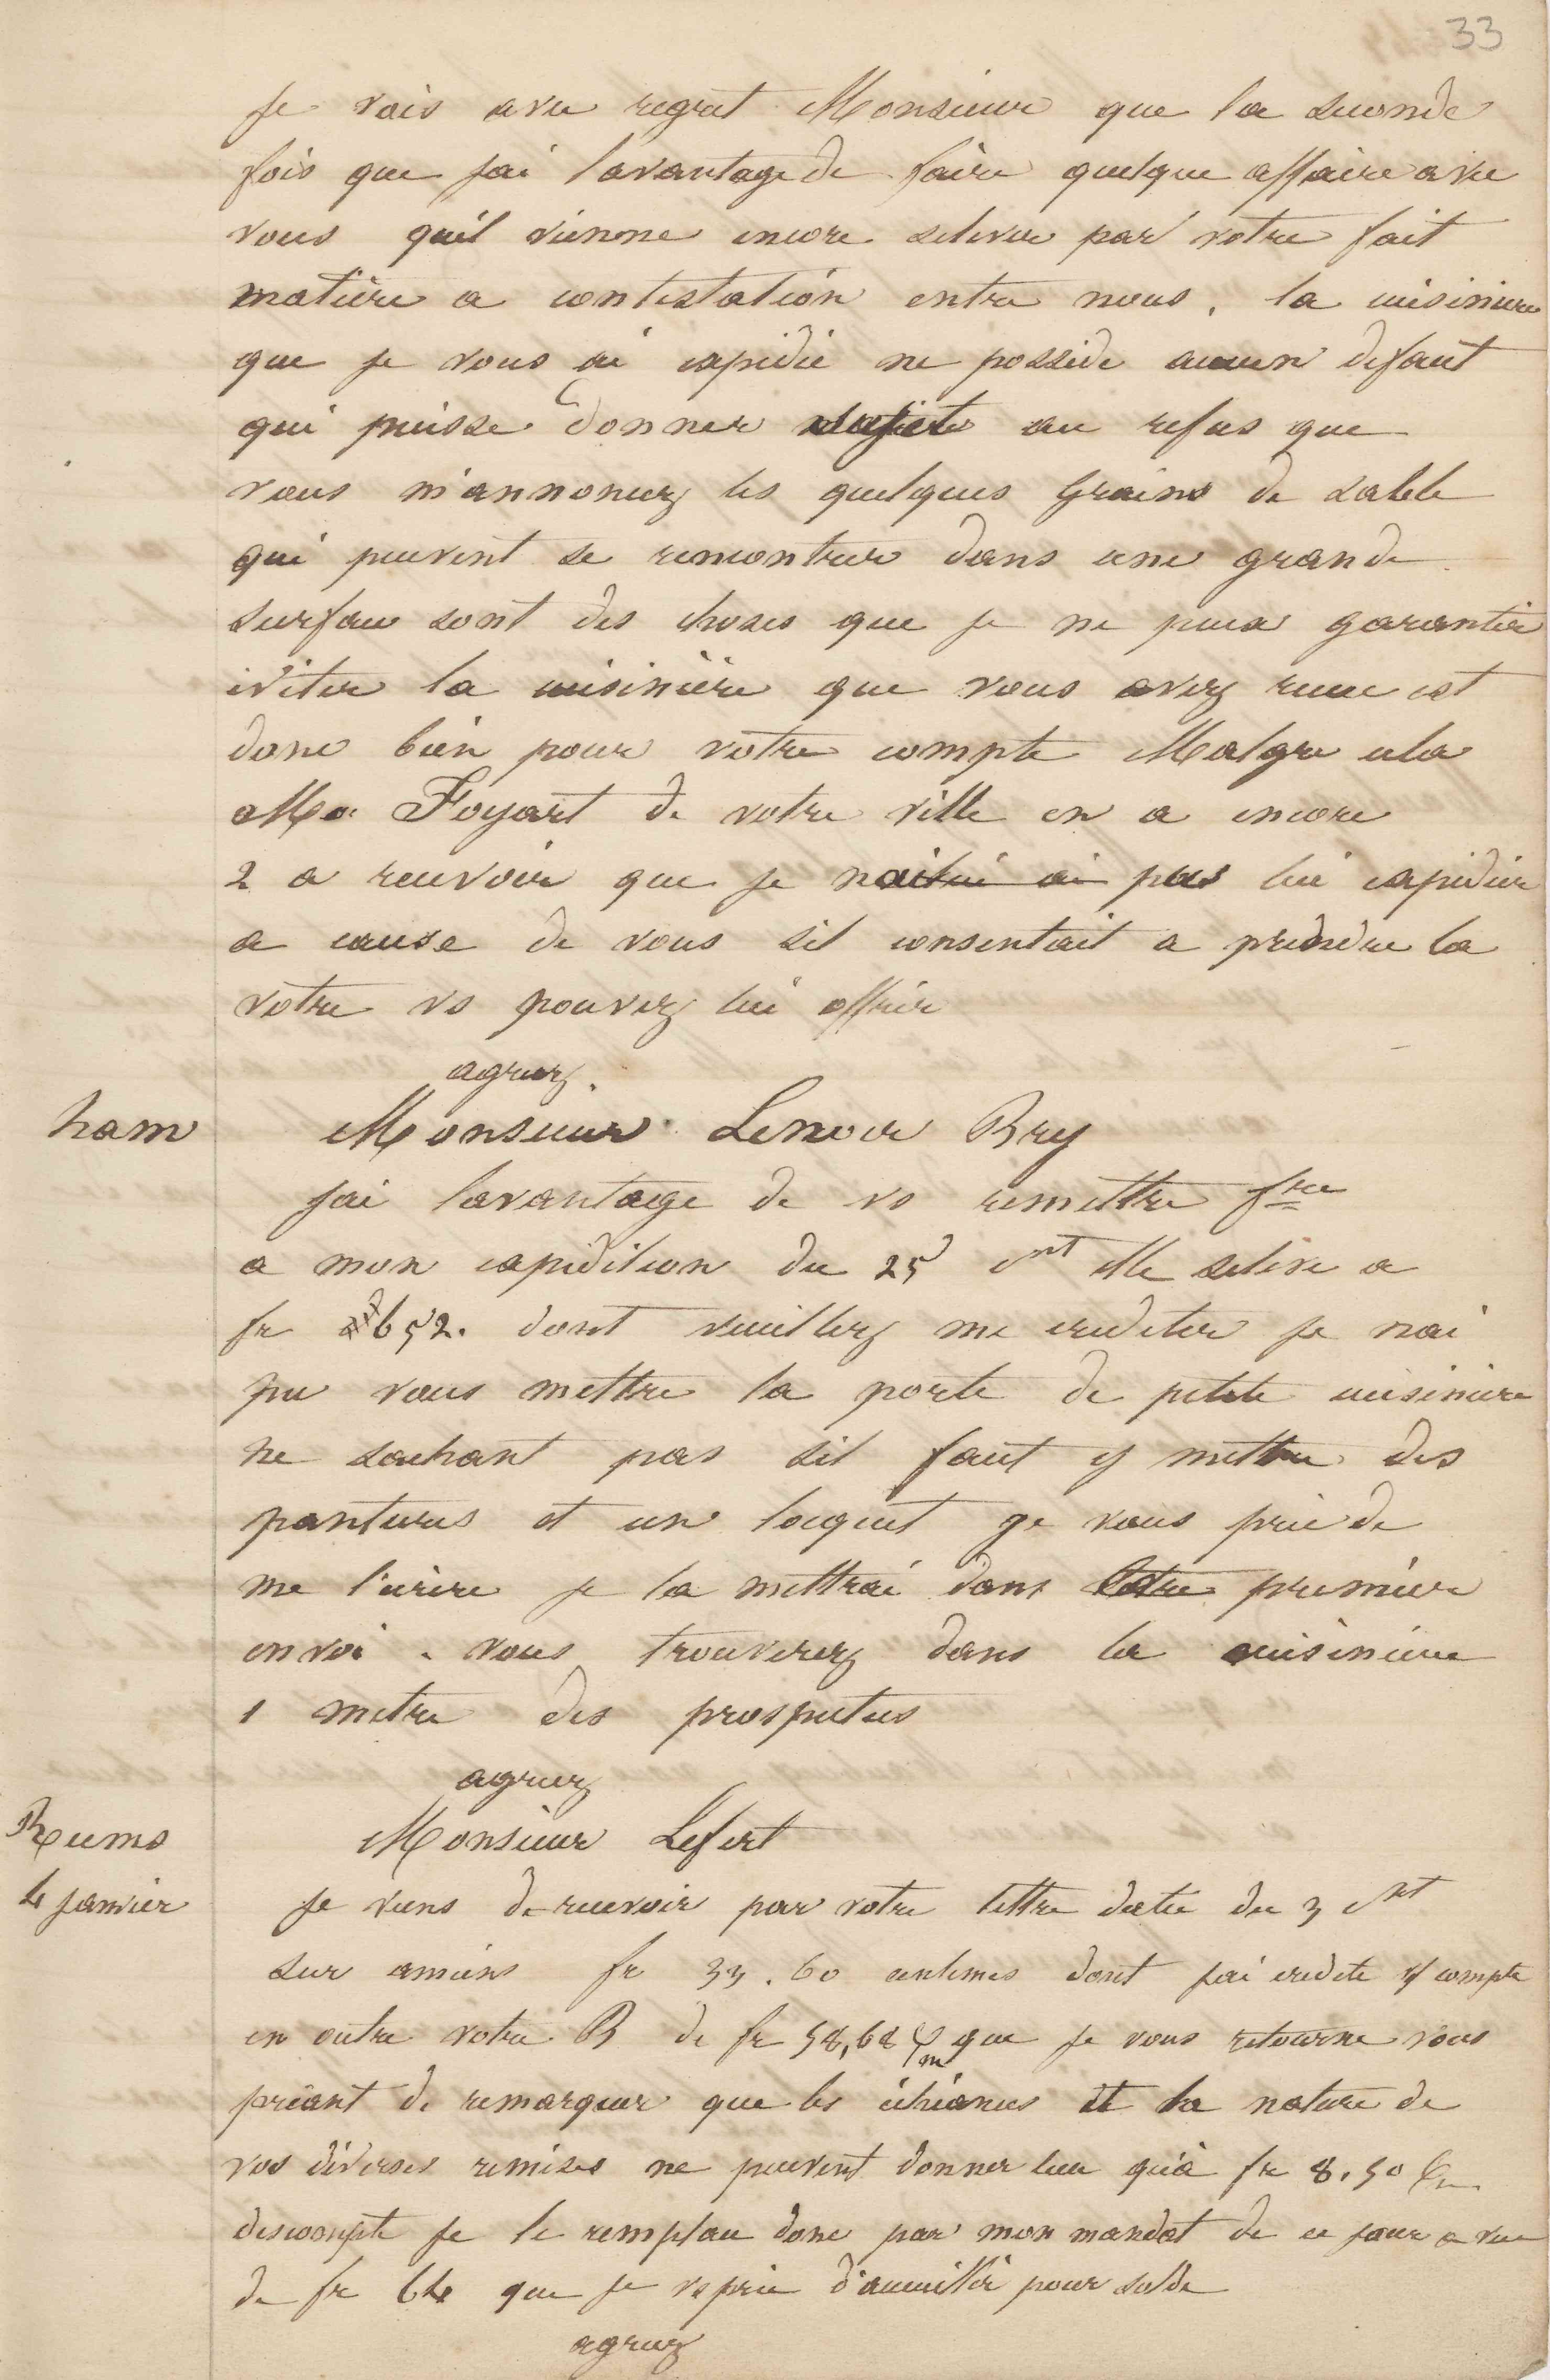 33
Je vois avec regret Monsieur que la seconde
fois que jai lavantage de faire quelque affaire avec
vous quil vienne encore selever par votre fait
matière a contestation entre nous, la cuisiniere
que je vous ai expidié ne posside aucun defaut
qui puisse donner au refus que
vous m'annoncez les quelques Grains de sable
qui peuvent se rencontrer dans une grande
surface sont des choses que je ne peux garantir
eviter la cuisinière que vous avez recue est
donc bien pour votre compte Malgre cela
Mr Foyart de votre ville en a encore
2 a recevoir que je pas lui expidier
a cause de vous sil consentait a prendre la
votre vs pouvez lui offrir
agreez.
ham Monsieur Lenoir Bry
jai lavantage de vs remettre fre
a mon expidition du 25 ct elle seleve a
fr 652. dont veuillez me crediter je nai
pu vous mettre la porte de petite cuisiniere
ne sachant pas sil faut y mettre des
pantures et un loquet je vous prie de
me l'ecrire je la mettrai dans premier
envoi. vous trouverez dans la cuisiniere
1 metre des prospectus
agreez
Reims Monsieur Lefert
4 janvier Je viens de recevoir par votre lettre datée du 3 ct
sur amiens fr 33.60 centimes dont jai credité compte
en outre votre B de fr 58,68 que je vous retourne vous
priant de remarquer que les échéances et la nature de
vos diverses remises ne peuvent donner lieu qu'à fr 8.50
descompte je le remplace donc par mon mandat de ce jour a vue
de fr 64 que je vs prie d'accueillir pour solde
agreez